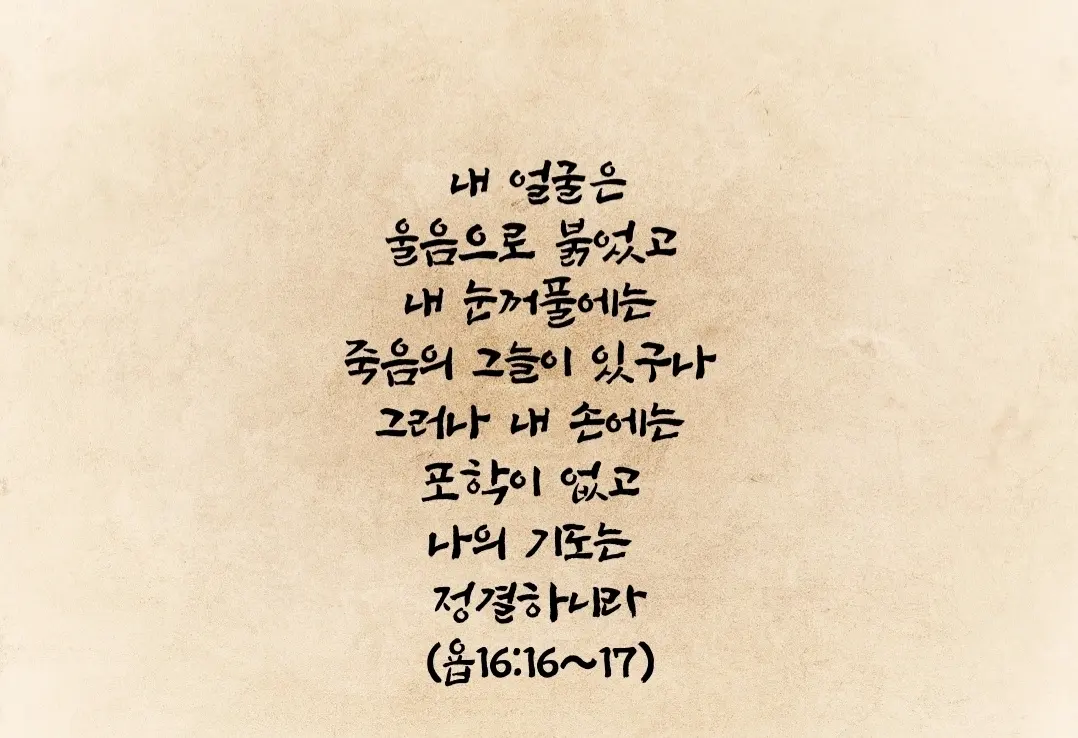 내 얼굴은
울음으로 붉었고
내 눈꺼풀에는
죽음의 그늘이 있구나
그러나 내 손에는
포학이 없고
나의 기도는
정결하니라
(욥16:16~17)